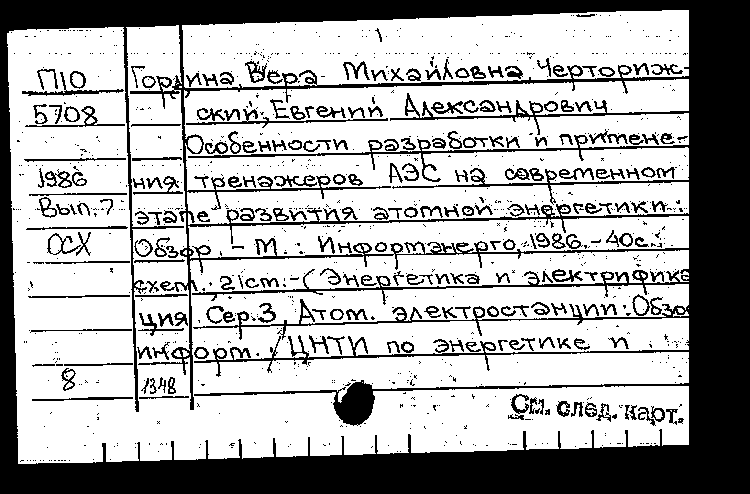 П10 Гордина, Вера Михайловна, Черториж-
5708 ский, Евгений Александрович
Особенности разработки и примене-
1986 ния тренажеров АЭС на современном
Вып. 7 этапе развития атомной энергетики :
ОСХ Обзор. - М. : Информэнерго, 1986. - 40с. :
схем.; 21см. - (Энергетика и электрифика
ция. Сер. 3, Атом. электростанции : Обзор
информ. / ЦНТИ по энергетике и
8 1348
См. след. карт.